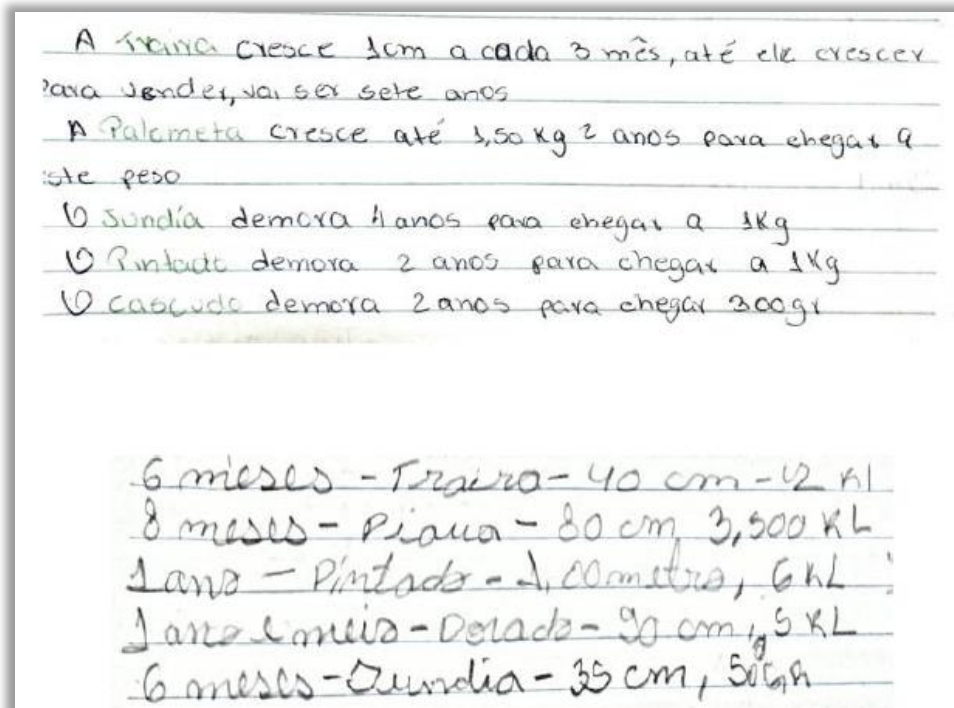 A Traíra cresce 1cm a cada 3 mês, até ele crescer
Para vender, vai ser sete anos
A Palometa cresce até 1,50 Kg 2 anos para chegar a
este peso
O Jundía demora 4 anos para chegar a 1Kg
O Pintado demora 2 anos para chegar a 1Kg
O cascudo demora 2 anos para chegar 300gr
6 meses - Traira - 40 cm - 2 Kl
8 meses - Piaua - 80 cm, 3,500 KL
1 ano - Pintado - 1,00 metro, 6 KL
1 ano e meio - Dorado - 90 cm, 5 KL
6 meses - Jundia - 35 cm,